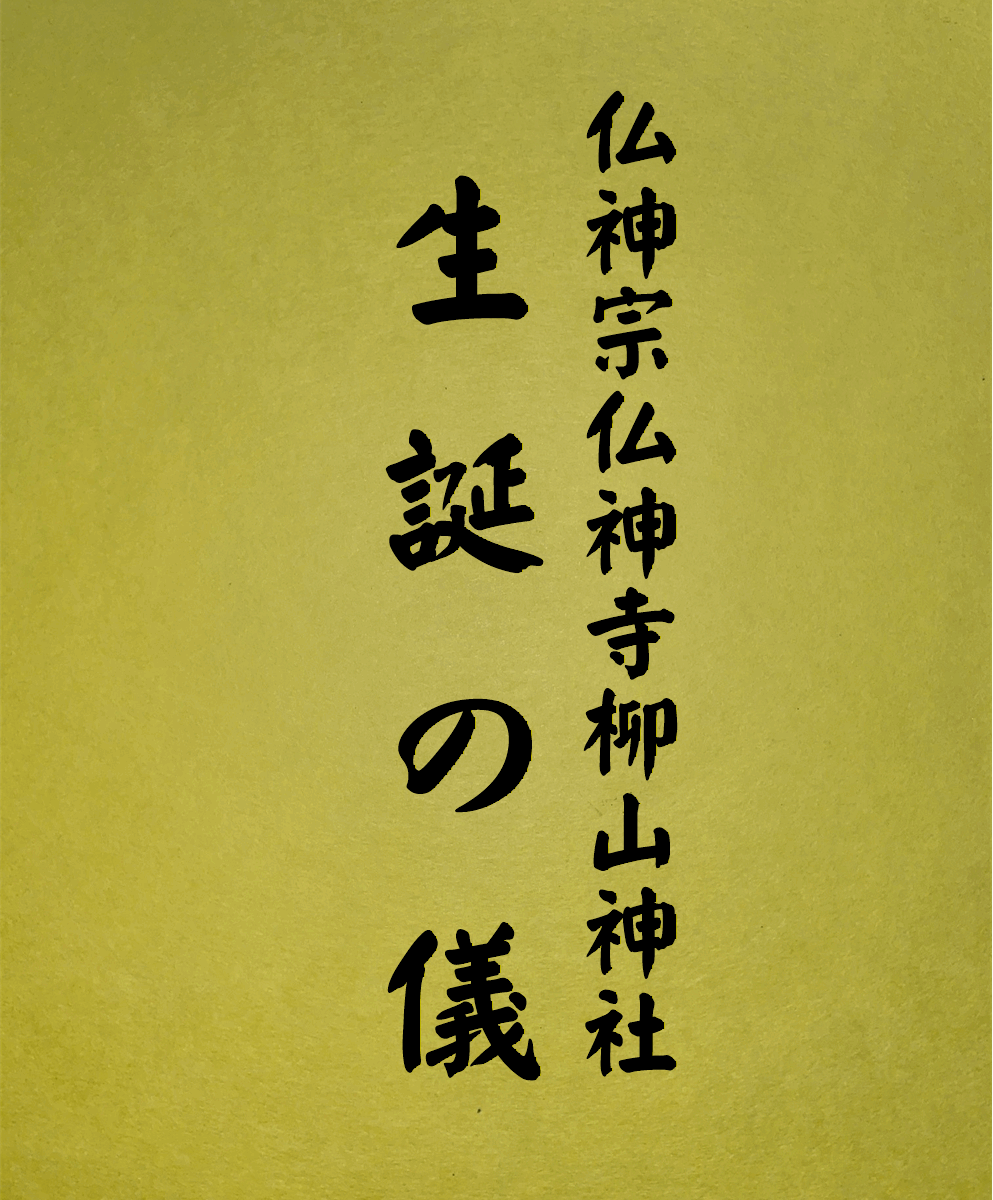 仏神宗仏神寺柳山神社
生誕の儀